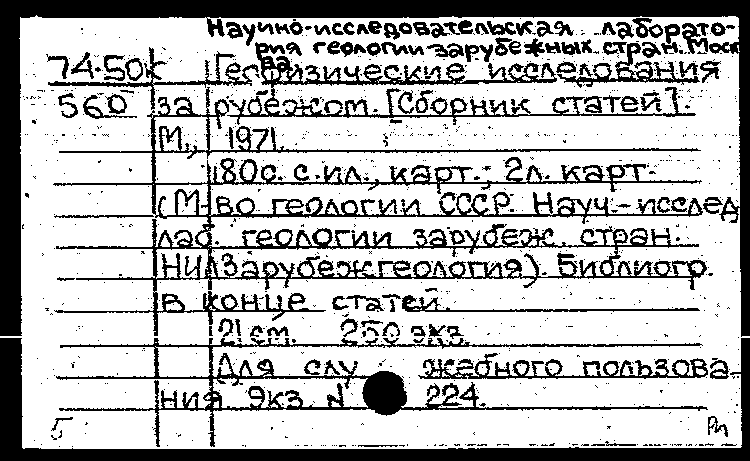 Научно-исследовательская лаборато-
рия геологии зарубежных стран. Москва
74-50к Геофизические исследования
560 за рубежом. [Сборник статей].
М., 1971.
180с. с ил., карт.; 2л. карт.
(М-во геологии СССР. Науч.-исслед.
лаб. геологии зарубеж. стран.
НИЛЗарубежгеология). Библиогр.
в конце статей.
21 см. 250 экз.
Для служебного пользова-
ния Экз. № 224.
5